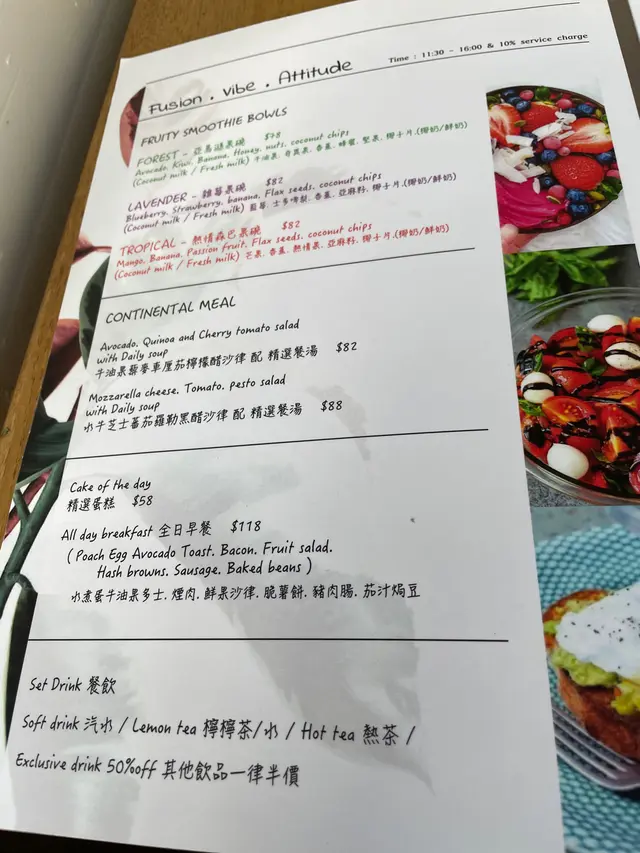 Fusion . Vibe . Attitude
Time : 11:30 - 16:00 & 10% service charge
FRUITY SMOOTHIE BOWLS
FOREST - 亞馬遜果碗 $78
Avocado, Kiwi, Banana, Honey, nuts, coconut chips
(Coconut milk / Fresh milk) 牛油果. 奇異果. 香蕉. 蜂蜜. 堅果. 椰子片.(椰奶/鮮奶)
LAVENDER - 雜莓果碗 $82
Blueberry, Strawberry, banana, Flax seeds, coconut chips
(Coconut milk / Fresh milk) 藍莓. 士多啤梨. 香蕉. 亞麻籽. 椰子片.(椰奶/鮮奶)
TROPICAL - 熱情森巴果碗 $82
Mango, Banana, Passion fruit, Flax seeds, coconut chips
(Coconut milk / Fresh milk) 芒果. 香蕉. 熱情果. 亞麻籽. 椰子片.(椰奶/鮮奶)
CONTINENTAL MEAL
Avocado. Quinoa and Cherry tomato salad
with Daily soup
牛油果藜麥車厘茄檸檬醋沙律 配 精選餐湯 $82
Mozzarella cheese. Tomato. pesto salad
with Daily soup
水牛芝士蕃茄羅勒黑醋沙律 配 精選餐湯 $88
Cake of the day
精選蛋糕 $58
All day breakfast 全日早餐 $118
( Poach Egg Avocado Toast. Bacon. Fruit salad.
Hash browns. Sausage. Baked beans )
水煮蛋牛油果多士. 煙肉. 鮮果沙律. 脆薯餅. 豬肉腸. 茄汁焗豆
Set Drink 餐飲
Soft drink 汽水 / Lemon tea 檸檬茶/水 / Hot tea 熱茶 /
Exclusive drink 50%off 其他飲品一律半價